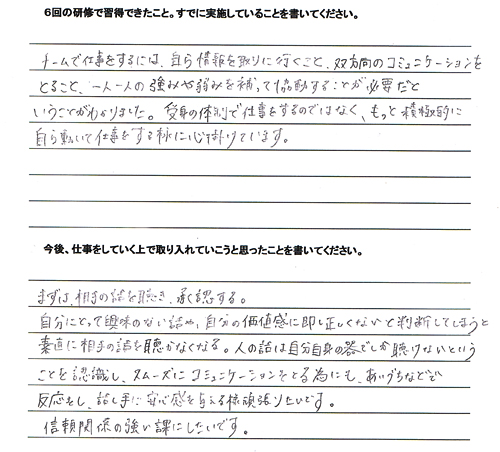 6回の研修で習得できたこと。すでに実施していることを書いてください。
チームで仕事をするには、自ら情報を取りに行くこと、双方向のコミュニケーションを
とること、一人一人の強みや弱みを補って協働することが必要だと
いうことがわかりました。受身の体制で仕事をするのではなく、もっと積極的に
自ら動いて仕事をする様に心掛けています。
今後、仕事をしていく上で取り入れていこうと思ったことを書いてください。
まずは、相手の話を聴き、承認する。
自分にとって興味のない話や、自分の価値感に即し正しくないと判断してしまうと
素直に相手の話を聴かなくなる。人の話は自分自身の器でしか聴けないという
ことを認識し、スムーズにコミュニケーションをとる為にも、あいづちなどで
反応をし、話し手に安心感を与える様頑張りたいです。
信頼関係の強い課にしたいです。